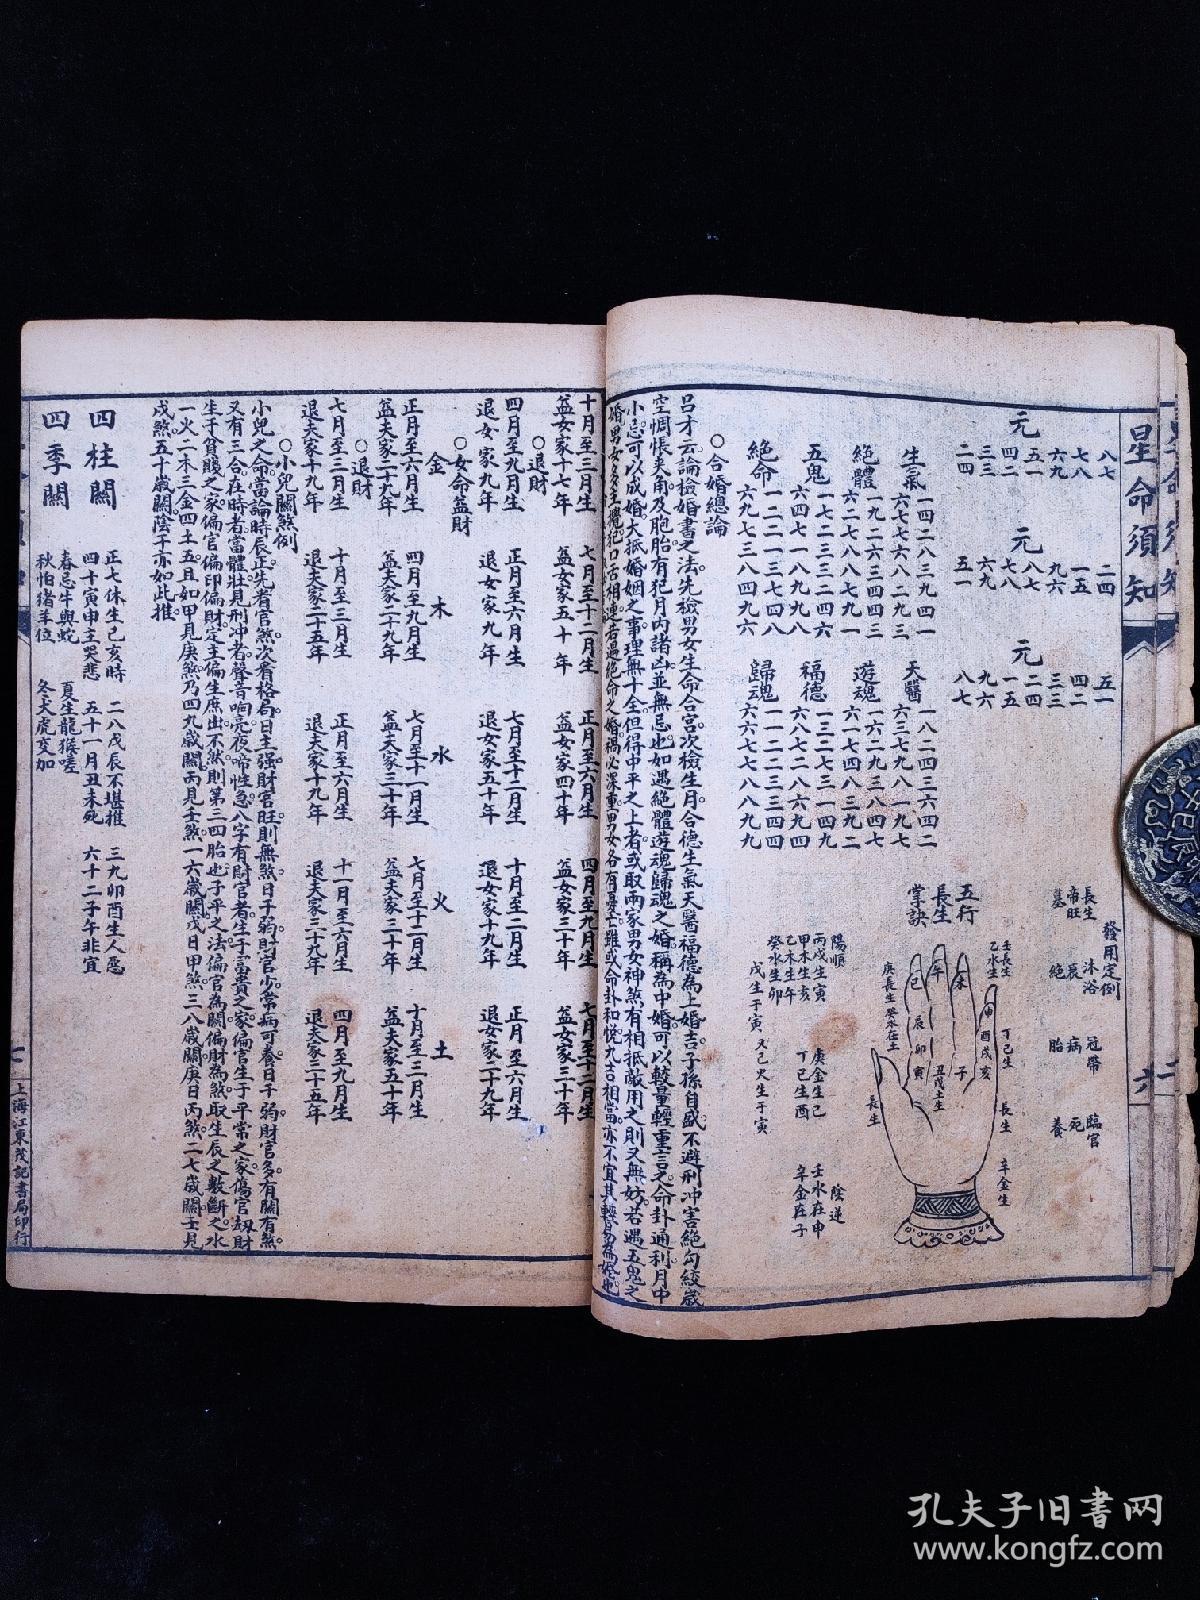 星命須知
八七 二四 五一
七八 一五 四二
六九 九六 三三
元 元 元
五一 八七 二四
四二 七八 一五
三三 六九 九六
二四 五一 八七
生氣 一四 二八 三九 四一 六七 七六 八二 九三
天醫 一八 二四 三六 四二 六三 七九 八一 九七
絕體 一九 二六 三四 四三 六二 七八 八七 九一
遊魂 一六 二九 三八 四七 六一 七四 八三 九二
五鬼 一七 二三 三二 四六 六四 七一 八九 九八
福德 一三 二七 三一 四九 六八 七二 八六 九四
絕命 一二 二一 三七 四八 六九 七三 八四 九六
歸魂 一一 二二 三三 四四 六六 七七 八八 九九
發用定例
長生 沐浴 冠帶 臨官
帝旺 衰 病 死
墓 絕 胎 養
五行
長生
掌訣
陽順
丙戊生寅 庚金生巳 壬水在申
甲木生亥 丁己生酉 辛金在子
乙木生午
癸水生卯
陰逆
戊生于寅 又己火生于寅
○合婚總論
呂才云論檢婚書之法先檢男女生命合宮次檢生月合德生氣天醫福德為上婚吉子孫自盛不避刑冲害絕勾絞歲
空惆悵夾角及胞胎有犯月內諸凶並無忌也如遇絕體遊魂歸魂之婚稱為中婚可以較量輕重言之命卦通利月中
小忌可以成婚大抵婚姻之事理無十全但得中平之上者或取兩家男女神煞有相抵敵用之則又無妨若遇五鬼之
十月至三月生 七月至十二月生 正月至六月生 四月至九月生 七月至十二月生
益女家十七年 益女家五十年 益女家四十年 益女家三十年 益女家三十年
○退財
四月至九月生 正月至六月生 七月至十二月生 十月至三月生 正月至六月生
退女家九年 退女家九年 退女家五十年 退女家十九年 退女家二十九年
○女命益財
金 木 水 火 土
正月至六月生 四月至九月生 七月至十一月生 七月至十二月生 十月至三月生
益夫家二十九年 益夫家二十九年 益夫家三十年 益夫家三十年 益夫家五十年
○退財
七月至三月生 十月至三月生 正月至六月生 十一月至六月生 四月至九月生
退夫家十九年 退夫家二十五年 退夫家十九年 退夫家三十九年 退夫家三十五年
○小兒關煞例
小兒之命當論時辰正先看官煞次看格局日主強財官旺則無煞日干弱財官少常病可養日干弱財官多有關有煞
又有三合在時者當體壯見刑冲者聲音响亮夜啼性急八字有財官者生于富貴之家偏官生于平常之家傷官劫財
生于貧賤之家偏官偏印偏財定主偏生庶出不然則第三四胎也子平之法偏官為關偏財為煞取生辰之數斷之水
一火二木三金四土五且如甲見庚煞乃四九歲關丙見壬煞一六歲關戊日甲煞三八歲關庚日丙煞二七歲關壬見
戊煞五十歲關陰干亦如此推
四柱關 正七休生己亥時 二八戌辰不堪推 三九卯酉生人惡
四十寅申主哭悲 五十一月丑未死 六十二子午非宜
四季關 春忌牛與蛇 夏生龍猴嗟
秋怕猪羊位 冬犬虎交加
七
上海江東茂記書局印行
孔夫子旧書网
www.kongfz.com